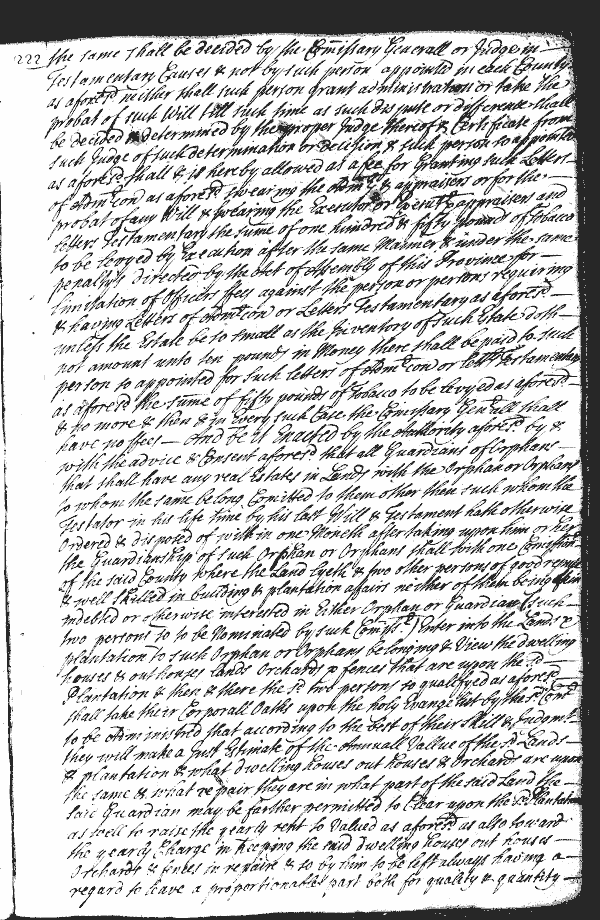 222 the same shall be decided by the Comissary Generall or Judge in
Testamentary Causes & not by such person appointed in each County
as afores:d neither shall such person grant administration or take the
probat of such Will till such time as such dispute or difference shall
be decided & determined by the proper Judge thereof & Certificate from
such Judge of such determination or decision & such person so appointed
as afores:d shall & is hereby allowed as a fee for Granting such Letters
of Adm:con as afores:d swearing the Adm:r & appraisers or for the
probat of any Will & swearing the Executor or Execut:rs appraisers and
Letters Testamentary the sume of one hundred & fifty pound of Tobacco
to be levyed by Execution after the same Manner & under the same
penaltys directed by the Act of Assembly of this Province for
Limitation of Officers ffees against the person or persons requiring
& having Letters of Adm:con or Letters Testamentary as afores:d
unless the Estate be so small as the Inventory of such Estate doth
not amount unto ten pounds in Money there shall be paid to such
person so appointed for such letters of Adm:con or lett:rs Testamentary
as afores:d the sume of fifty pounds of Tobacco to be levyed as afores:d
& no more & then & in Every such Case the Comissary Gen:all shall
have no ffees — And be it Enacted by the Authority afores:d by &
with the advice & Consent afores:d that all Guardians of Orphans
that shall have any real Estates in Lands with the Orphan or Orphans
to whom the same belong Comitted to them other then such whom the
Testator in his life time by his last Will & Testament hath otherwise
Ordered & disposed of with in one Moneth after taking upon him or her
the Guardianship of such Orphan or Orphans shall with one
of the said County where the Land lyeth & two other persons of good repute
& well skilled in building & plantation affairs neither of them being
indebted or otherwise interested in Either Orphan or Guardian (such
two persons to be Nominated by such ) Enter into the Lands &
plantation to such Orphan or Orphans belonging & View the dwelling
houses & outhouses Lands Orchards & fences that are upon the s:d
Plantation & then & there the s:d two persons so qualifyed as afores:d
shall take their Corporall Oaths upon the holy Evangelist by the s:d
to be Administred that according to the best of their skill & Judgm:t
they will make a Just Estimate of the Annuall Vallue of the s:d Lands
& plantation & what dwelling houses out houses & Orchards are upon
the same & what repair they are in what part of the said Land the
said Guardian may be farther permitted to Clear upon the s:d Plantation
as well to raise the yearly rent so Valued as afores:d as also toward
the yearly Charge in keeping the said dwelling houses out houses
Orchards & fences in repaire & so by him to be left always having a
regard to leave a proportionable part both for quality & quantity